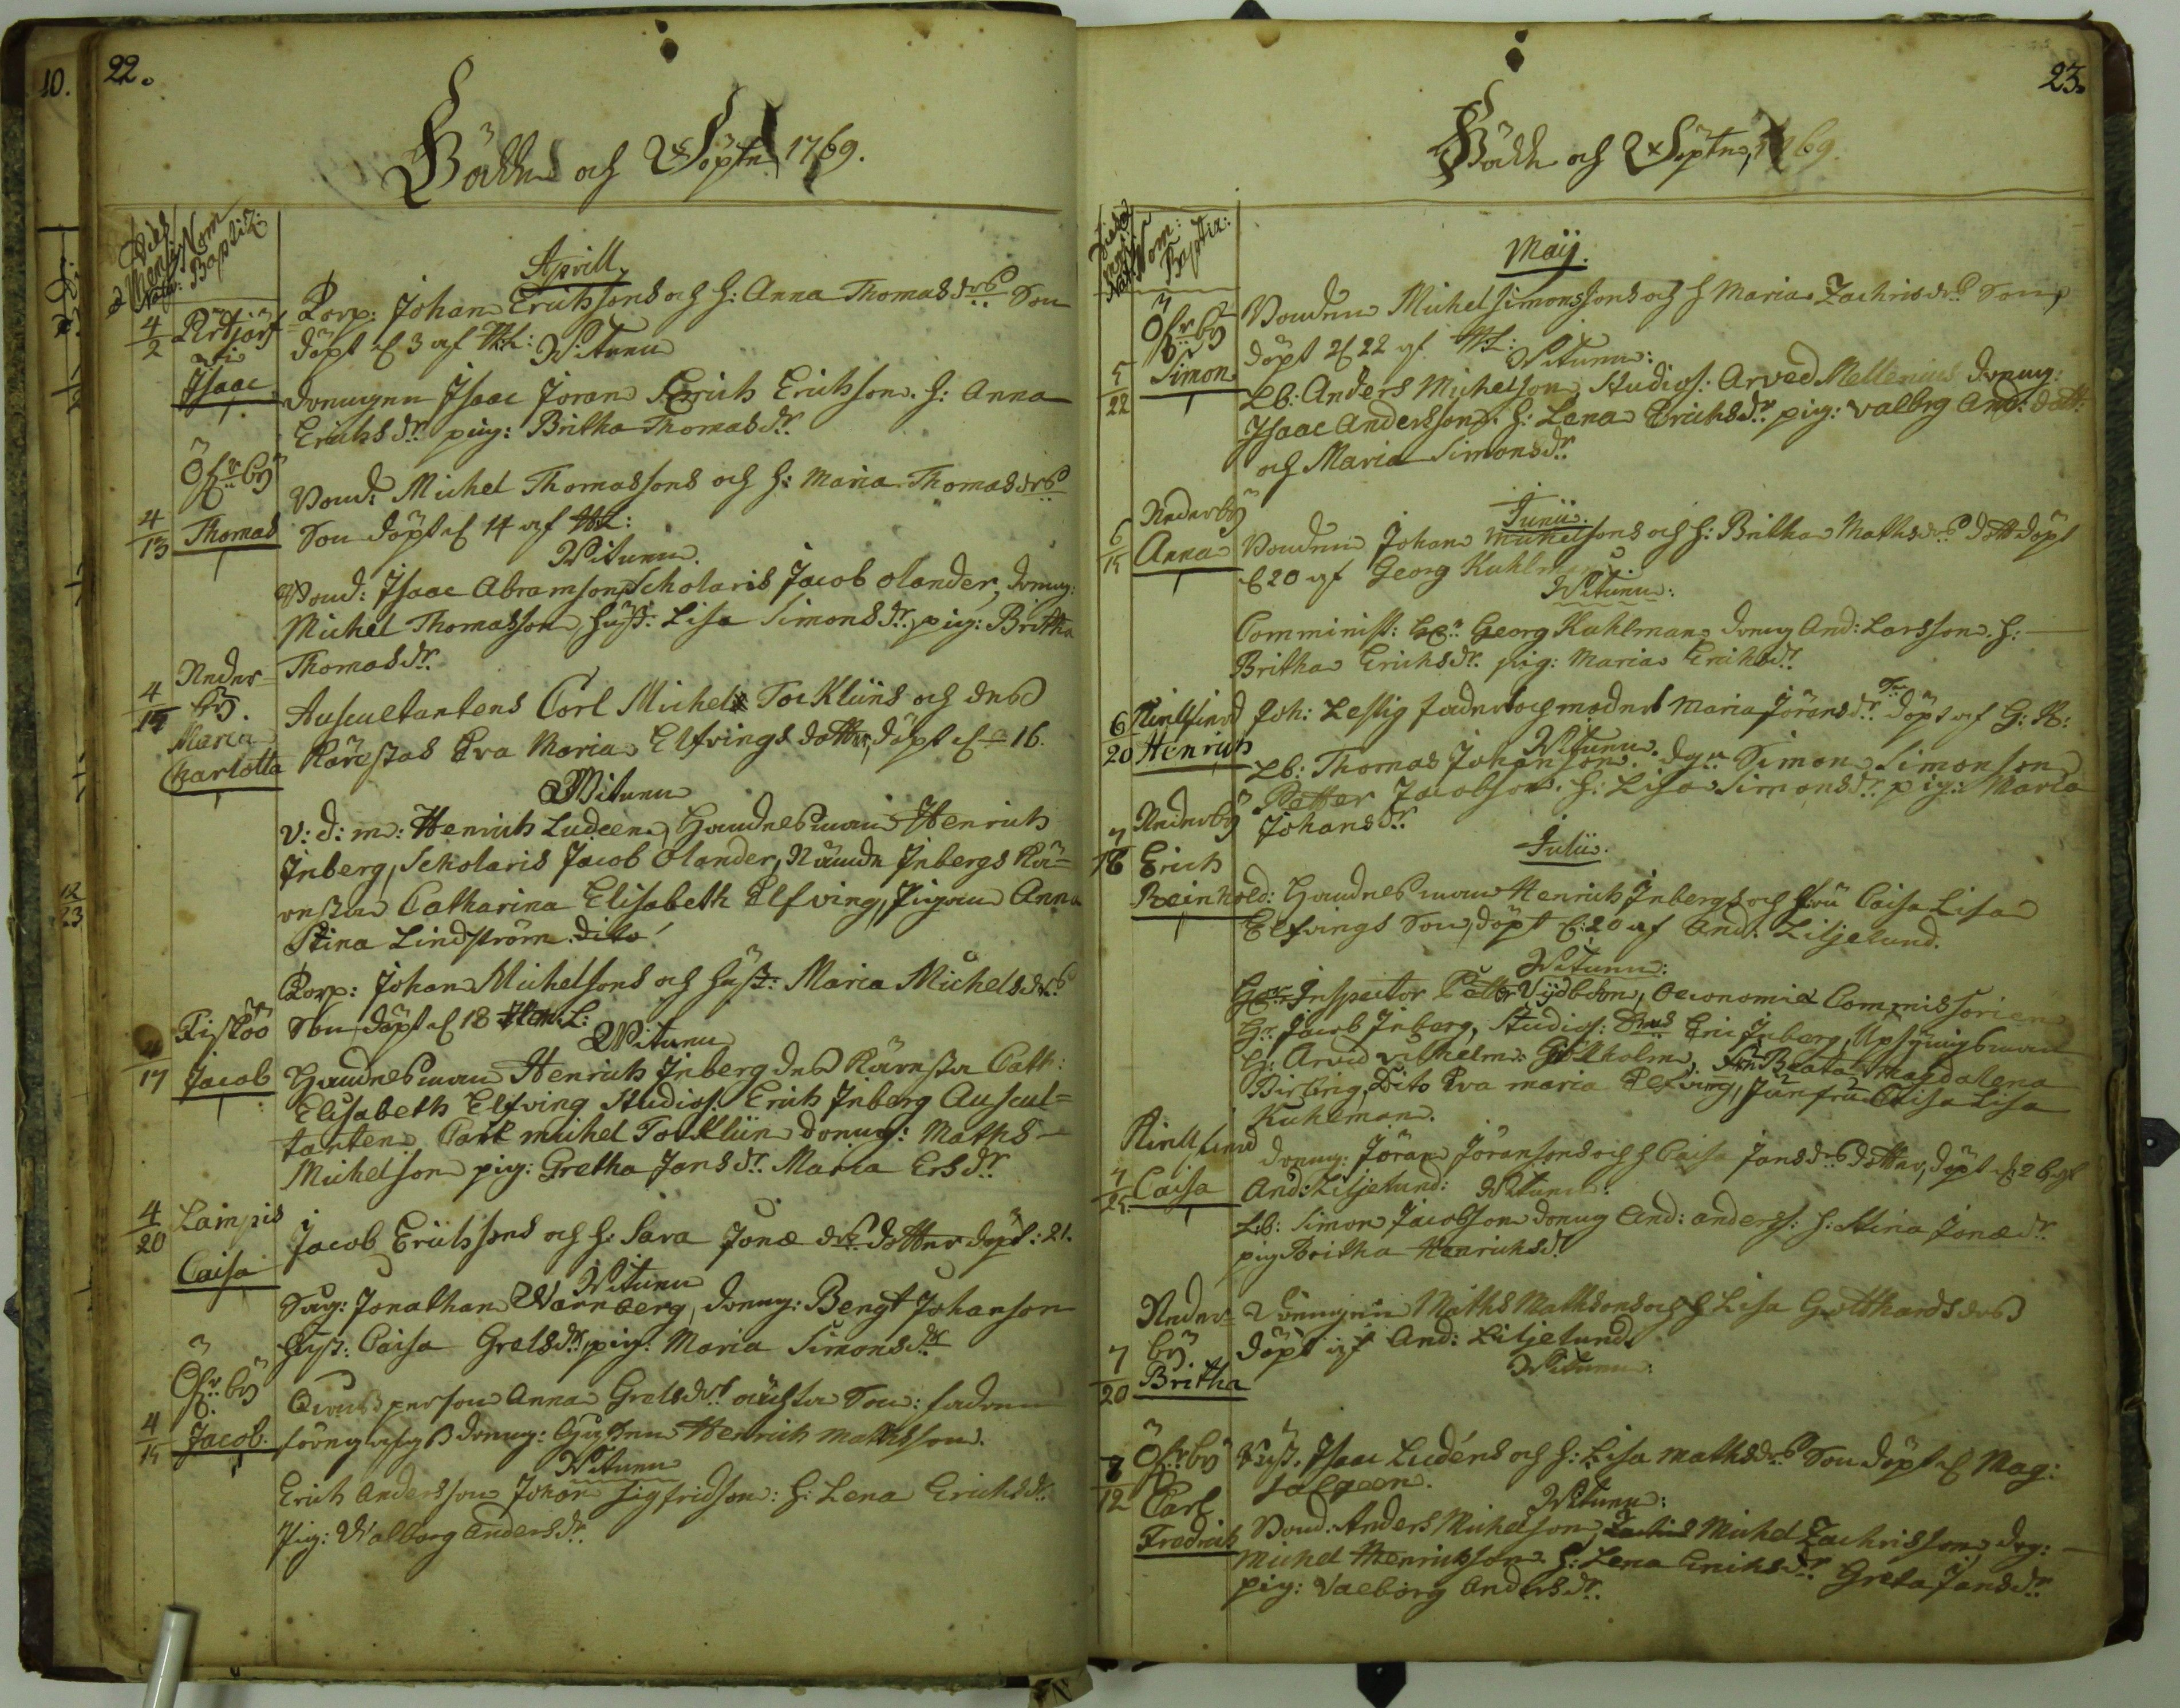 10.
22.
Födde och Döpte 1769.
Dies Mensis Nati
Nom: Baptiz:
Aprill
4/2
Isaac
Corp: Johan Erichssons och h: Anna Thomasdrs Son
döpt d 3 af
Witnen
Isaac Joran Erich Erichsson. h: Anna
Erichsdr. pig: Britha Thomasdr.
Öfwerby
4/13 Thomas
Bond: Michel Thomassons och h: Maria Thomasdrs
Son döpt d 14 af
Witnen
Bond: Isaac Abramson Scholaris Jacob Olander, dreng:
Michel Thomasson hust: Lisa Simonsdr. pig: Britha
Thomasdr.
Neder-
by.
4/15
Maria
Charlotta
Auscultantens Carl Michel Tocklins och dess
Kärestas Eva Maria Elfvings dotter, döpt d 16.
Witnen
v: d: m: Henrich Ludeen, Handelsman Henrich
Inberg, Scholaris Jacob Olander, Inbergs Kä-
resta Catharina Elisabeth Elfving, Pigan Anna
Stina Lindström dito
Fiskö
4/17 Jacob
Corp: Johan Michelsons och hust: Maria Michelsdrs
Son döpt d 18
Witnen
Handelsman Henrich Inberg dess Käresta Cath:
Elisabeth Elfving Studios. Erich Inberg Auscul-
tanten Carl Michel Tocklin dreng: Maths
Michelson pig: Gretha Jansdr. Maria Ersdr.
4/20 Lampis
Caisa
Jacob Erichssons och h: Sara Jonæ drs dotter döpt: 21.
Witnen
Jonathan Warnberg, dreng: Bengt Johanson
hust: Caisa Grelsdr pig: Maria Simonsdr
Öfwerby
4/15 Jacob.
Qwinsperson Anna Grelsdrs oächta Son: fadren
dreng: Henrich Mathsson.
Witnen
Erich Andersson Johan Sigfridson: h: Lena Erichsdr.
Pig: Walborg Andersdr.
23.
Födde och Döpte, 1769.
Dies Mensis Nati
Nom: Baptiz:
Maij.
Öfwerby
5/22 Simon
Bonden Michel Simonssons och h Maria Zachrisdrs Son,
döpt d 22 af
Witnen:
Lb: Anders Michelson, Studios: Arved Mellenius dreng:
Isaac Andersson. h: Lena Erichsdr. pig: Valbrg And: dott:
och Maria Simonsdr.
Junii.
Nederby
6/15 Anna
Bonden Johan Michelsons och h: Britha Mathsdrs dott döpt
d 20 af Georg Kuhlman.
Witnen:
Comminist: Georg Kuhlman dreng And: Larsson. h:
Britha Erichsdr. pig: Maria Erichsdr.
6/20
Henrich
Joh: Leffig fader och moder Maria Jöransdr. döpt af G: K:
Witnen.
Lb: Thomas Johanson. Simon Simonson
Petter Jacobson. h: Lisa Simonsdr. pig: Maria
Johansdr.
Nederby
Julii.
7/18 Erich
Reinhold:
Handelsman Henrich Inbergs och fru Caisa Lisa
Elfvings Son, döpt d: 20 af And: Liljelund.
Witnen:
Inspector Petter, Oeconomie Commissarien
Hr: Jacob Inberg, Studios: Eric Inberg, Upsyningsman
Hr: Arvid Vilhelm, Beata Magdalena
Dito Eva Maria Elfving, Junfru Caisa Lisa
Kuhlman.
7/25 Caisa
dreng: Jöran Jöransons och h Caisa Jansdrs dotter, döpt d: 26 af
And: Liljelund: Witnen:
Lb: Simon Jacobson dreng And: anderss: h: Stina Jonædr.
pig Britha Henrichsdr
Neder-
by
7/20
Britha
Drengen Maths Mathsons och h Lisa Gotthardsdrs
döpt af And: Liljelund.
Witnen:
Öfwerby
8/12
Carl
Fredrich
Isaac Ludéns och h: Lisa Mathsdrs Son döpt af Mag:
Witnen:
Bond: Anders Michelson, Michel Zachrisson, drg:
Michel Henrichson h: Lena Erichsdr. Greta Jansdr.
pig: Valborg Andersdr.
12/23